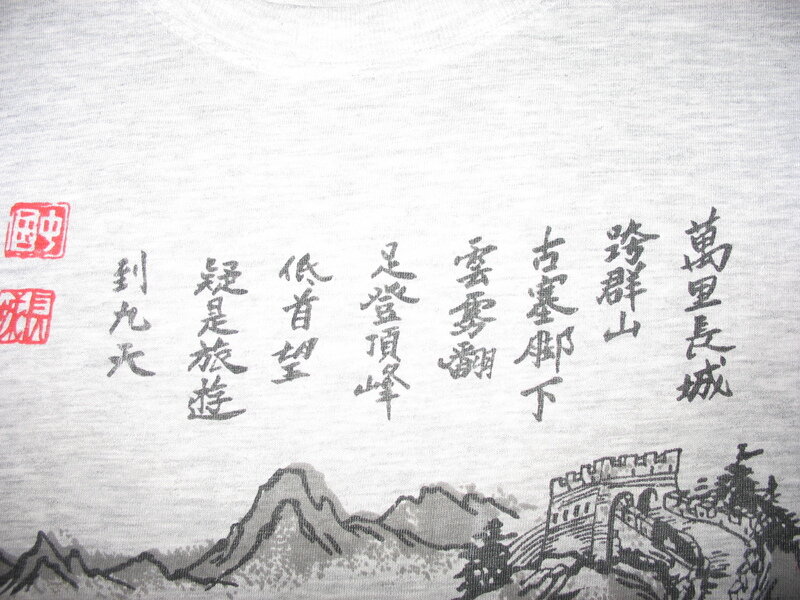 萬里長城
跨群山
古塞脚下
雲霧翻
足登頂峰
低首望
疑是旅遊
到九天
中國
長城